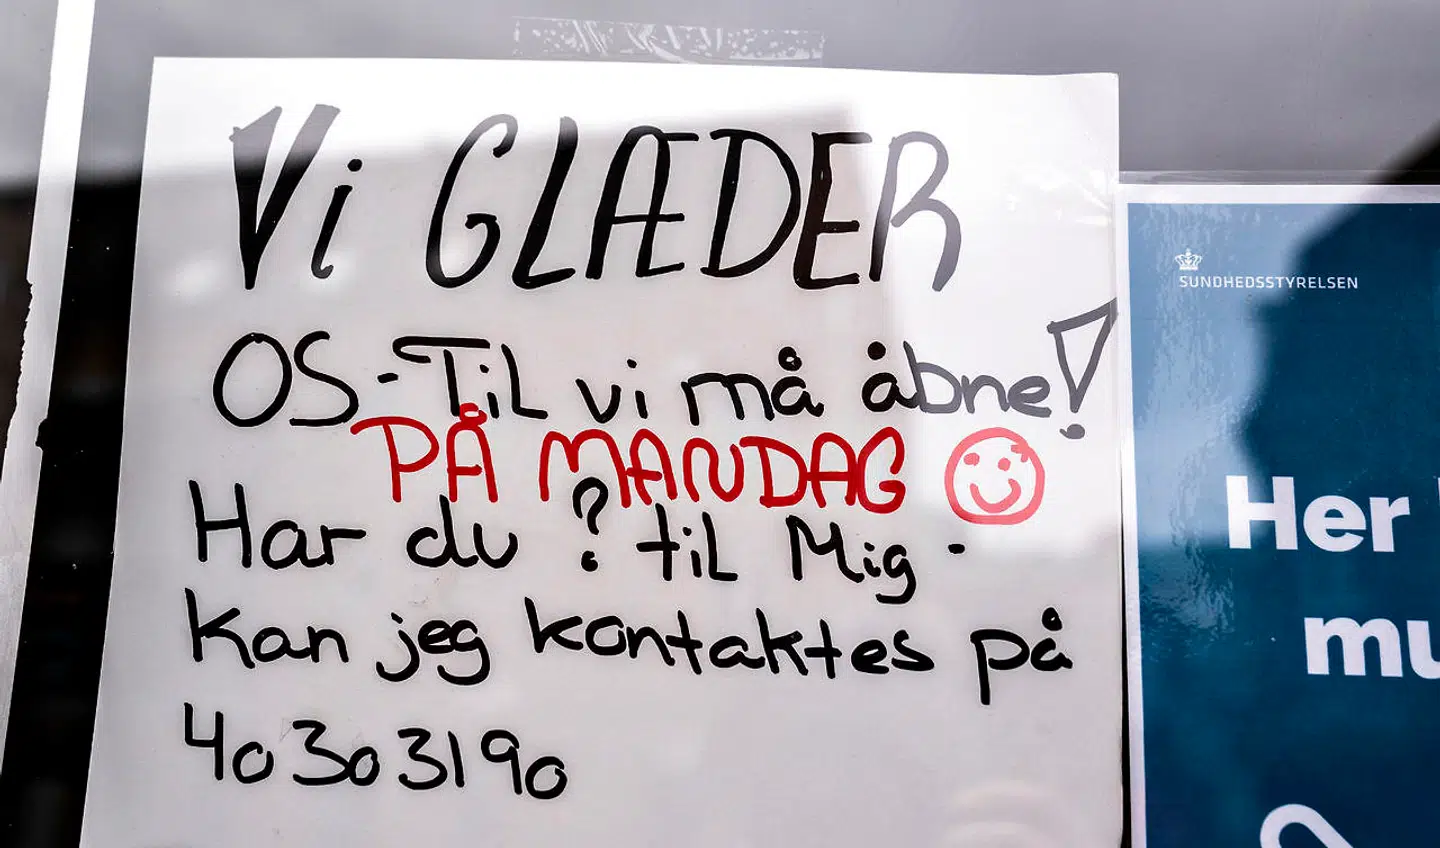 Vi GLÆDER
OS-Til vi må åbne!
PÅ MANDAG
Har du ? til Mig -
Kan jeg kontaktes på
40303190
SUNDHEDSSTYRELSEN
Her
mu